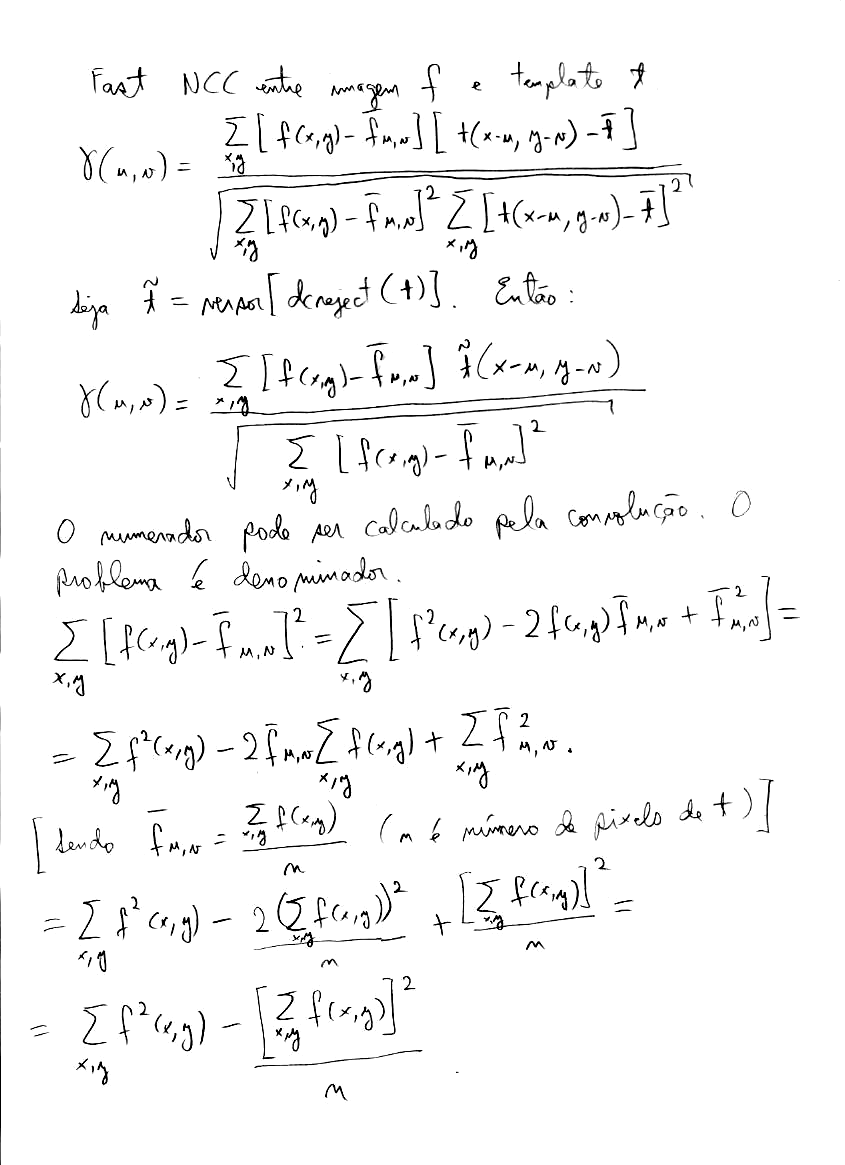 Fast NCC entre imagem f e template t
γ(u,v) = Σ_{x,y} [f(x,y) − f̄_{u,v}] [t(x−u, y−v) − t̄] / √( Σ_{x,y} [f(x,y) − f̄_{u,v}]² Σ_{x,y} [t(x−u, y−v) − t̄]² )
Seja t̃ = versor[dcreject(t)]. Então:
γ(u,v) = Σ_{x,y} [f(x,y) − f̄_{u,v}] t̃(x−u, y−v) / √( Σ_{x,y} [f(x,y) − f̄_{u,v}]² )
O numerador pode ser calculado pela convolução. O
problema é denominador.
Σ_{x,y} [f(x,y) − f̄_{u,v}]² = Σ_{x,y} [f²(x,y) − 2f(x,y) f̄_{u,v} + f̄²_{u,v}] =
= Σ_{x,y} f²(x,y) − 2f̄_{u,v} Σ_{x,y} f(x,y) + Σ_{x,y} f̄²_{u,v}.
[Sendo f̄_{u,v} = Σ_{x,y} f(x,y) / n (n é número de pixels de t)]
= Σ_{x,y} f²(x,y) − 2(Σ_{x,y} f(x,y))² / n + [Σ_{x,y} f(x,y)]² / n =
= Σ_{x,y} f²(x,y) − [Σ_{x,y} f(x,y)]² / n